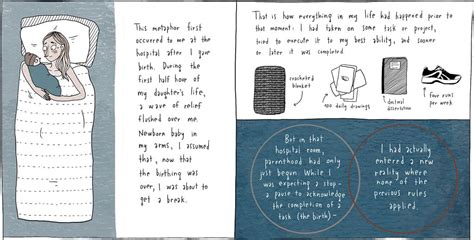 This metaphor first
occurred to me at the
hospital after I gave
birth. During the
first half hour of
my daughter's life,
a wave of relief
flushed over me.
Newborn baby in
my arms, I assumed
that, now that
the birthing was
over, I was about to
get a break.
That is how everything in my life had happened prior to
that moment: I had taken on some task or project,
tried to execute it to my best ability, and sooner
or later it was completed.
crocheted
blanket
100 daily drawings
doctoral
dissertation
four runs
per week
But in that
hospital room,
parenthood had only
just begun. While I
was expecting a stop –
a pause to acknowledge
the completion of a
task (the birth) –
I had actually
entered a new
reality where
none of the
previous rules
applied.